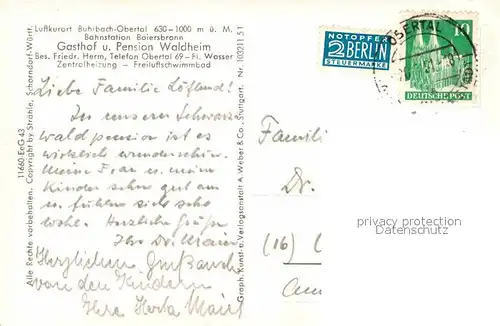 Luftkurort Buhlbach-Obertal 630-1000 m ü. M.
Bahnstation Baiersbronn
Gasthof u. Pension Waldheim
Bes. Friedr. Herm, Telefon Obertal 69 - Fl. Wasser
Zentralheizung - Freiluftschwimmbad
Liebe Familie Löfland!
In unserer Schwarz-
waldpension ist es
wirklich wunderschön.
Meine Frau u. mein
Kinder sehr gut am
u. fühlen sich sehr
wohl. Herzliche Grüße
Ihr Dr. Maier
Herzlichen Gruß auch
von den Kindern
Ihre Herta Maier
11660 EeG 43
Alle Rechte vorbehalten. Copyright by Strähle, Schorndorf-Württ.
Graph. Kunst- u. Verlagsanstalt A. Weber & Co., Stuttgart. Nr. 103211 51
NOTOPFER
2 BERLIN
STEUERMARKE
OBERTAL
10
DEUTSCHE POST
Famili
Dr.
(16)
privacy protection